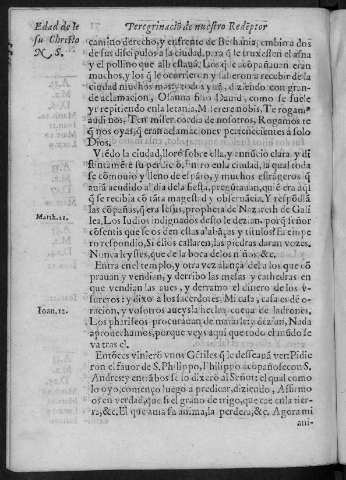 Edad de Ie
su Christo
N. S.
Peregrinaciō de nuestro Redētor
camino derecho, y enfrente de Bethania, embia a dos
de sus discipulos a la ciudad, para q̃ le truxessen el asna
y el pollino que alli estaua. Los q̃ le acōpañauan eran
muchos, y los q̃ le ocurrieron y salieron a recebir de la
ciudad muchos mas: y todos a vna, diziendo con gran-
de aclamacion, Osanna filio Dauid, como se suele
yr repitiendo en la letania, Miserere nobis, Te rogam⁹
audi nos, Ten misericordia de nosotros, Rogamos te
q̃ nos oyas, q̃ eran aclamaciones pertenecientes a solo
Dios.
Viēdo la ciudad, lloró sobre ella, y anūciò clara, y di
stintamēte su perdició. Entro en la ciudad, la qual toda
se cōmouio y lleno de espāto, y muchos estrāgeros q̃
auiā acudido al dia de la fiesta, preguntauan, quiē era aq̃l
q̃ se recibia cō tāta magestad y obseruācia. Y respōdīā
las cōpañas, q̃ era Iesus, propheta de Nazareth de Gali
lea. Los Iudios indignados desto le dezian, porq̃ señor
cōsentis que se os den estas alabāças y titulos? El empe
ro respondio, Si estos callaren, las piedras daran vozes.
Nunca leystes, que de la boca de los niños &c.
Matth. 21.
Entra en el templo, y otra vez alança del a los que cō
prauan y vendian, y derribo las mesas y cathedras en
que vendian las aues, y derramo el dinero de los v-
sureros: y dixo a los sacerdotes. Mi casa, casa es de o-
racion, y vosotros aueysla hecho cueua de ladrones.
Los phariseos procurauan de matarle; dezian, Nada
aprouechamos, porque veys aqui que todo el mūdo se
va tras el.
Ioan. 12.
Entōces vinierō vnos Gētiles q̃ le desseauā ver: Pidie
ron el fauor de S. Philippo, Philippo acōpañose con S.
Andres: y entrābos se lo dixerō al Señor: el qual como
lo oyo, començo luego a predicar, diziendo, Affirmo
os en verdad, que si el grano de trigo, que cae en la tier-
ra, &c. El que ama su anima, la perdera, &c. Agora mi
ani-